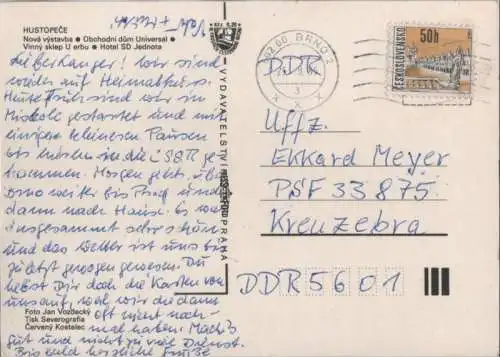 HUSTOPEČE
Nová výstavba • Obchodní dům Universal •
Vinný sklep U erbu • Hotel SD Jednota
wir sind
wieder auf Heimatkurs.
Heute früh sind wir in
Miskolc gestartet und mit
einigen kleineren Pausen
bis in die ČSSR ge-
kommen. Morgen geht's über
Brno weiter bis Prag und
dann nach Hause. Es war
insgesamt sehr schön
und das Wetter ist uns bis
zuletzt gewogen gewesen. Du
hebst Dir doch die Karten von
uns auf, weil wir die dann
oft nicht noch-
mal haben. Mach's
gut und nicht zu viel Dienst.
Bis bald herzliche Grüße
Foto Jan Vozdecký
Tisk Severografia
Červený Kostelec
VYDAVATELSTVÍ
PRAHA
BRNO 2
3
x x x
50h
ČESKOSLOVENSKO
DDR
Uffz.
Ekkard Meyer
PSF 33875
Kreuzebra
DDR 5601